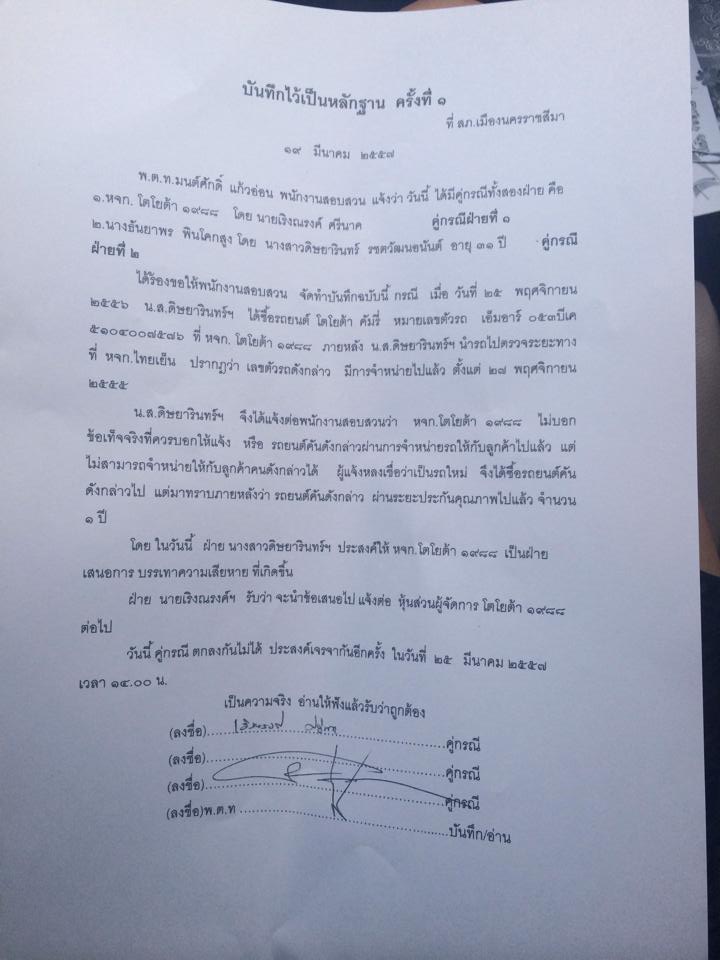 บันทึกไว้เป็นหลักฐาน ครั้งที่ ๑
ที่ สภ.เมืองนครราชสีมา
๑๙ มีนาคม ๒๕๕๗
พ.ต.ท.มนต์ศักดิ์ แก้วอ่อน พนักงานสอบสวน แจ้งว่า วันนี้ ได้มีคู่กรณีทั้งสองฝ่าย คือ
๑.หจก. โตโยต้า ๑๙๘๘ โดย นายเริงณรงค์ ศรีนาค คู่กรณีฝ่ายที่ ๑
๒.นางธันยาพร พินโคกสูง โดย นางสาวดิษยารินทร์ รชตวัฒนอนันต์ อายุ ๓๑ ปี คู่กรณี
ฝ่ายที่ ๒
ได้ร้องขอให้พนักงานสอบสวน จัดทำบันทึกฉบับนี้ กรณี เมื่อ วันที่ ๒๕ พฤศจิกายน
๒๕๕๖ น.ส.ดิษยารินทร์ฯ ได้ซื้อรถยนต์ โตโยต้า คัมรี่ หมายเลขตัวรถ เอ็มอาร์ ๐๕๓บีเค
๕๑๐๔๐๐๗๕๗๖ ที่ หจก. โตโยต้า ๑๙๘๘ ภายหลัง น.ส.ดิษยารินทร์ฯ นำรถไปตรวจระยะทาง
ที่ หจก.ไทยเย็น ปรากฎว่า เลขตัวรถดังกล่าว มีการจำหน่ายไปแล้ว ตั้งแต่ ๒๗ พฤศจิกายน
๒๕๕๕
น.ส.ดิษยารินทร์ฯ จึงได้แจ้งต่อพนักงานสอบสวนว่า หจก.โตโยต้า ๑๙๘๘ ไม่บอก
ข้อเท็จจริงที่ควรบอกให้แจ้ง หรือ รถยนต์คันดังกล่าวผ่านการจำหน่ายรถให้กับลูกค้าไปแล้ว แต่
ไม่สามารถจำหน่ายให้กับลูกค้าคนดังกล่าวได้ ผู้แจ้งหลงเชื่อว่าเป็นรถใหม่ จึงได้ซื้อรถยนต์คัน
ดังกล่าวไป แต่มาทราบภายหลังว่า รถยนต์คันดังกล่าว ผ่านระยะประกันคุณภาพไปแล้ว จำนวน
๑ ปี
โดย ในวันนี้ ฝ่าย นางสาวดิษยารินทร์ฯ ประสงค์ให้ หจก.โตโยต้า ๑๙๘๘ เป็นฝ่าย
เสนอการ บรรเทาความเสียหาย ที่เกิดขึ้น
ฝ่าย นายเริงณรงค์ฯ รับว่า จะนำข้อเสนอไป แจ้งต่อ หุ้นส่วนผู้จัดการ โตโยต้า ๑๙๘๘
ต่อไป
วันนี้ คู่กรณี ตกลงกันไม่ได้ ประสงค์เจรจากันอีกครั้ง ในวันที่ ๒๕ มีนาคม ๒๕๕๗
เวลา ๑๔.๐๐ น.
เป็นความจริง อ่านให้ฟังแล้วรับว่าถูกต้อง
(ลงชื่อ)........................................คู่กรณี
(ลงชื่อ)........................................คู่กรณี
(ลงชื่อ)........................................คู่กรณี
(ลงชื่อ)พ.ต.ท ........................................บันทึก/อ่าน